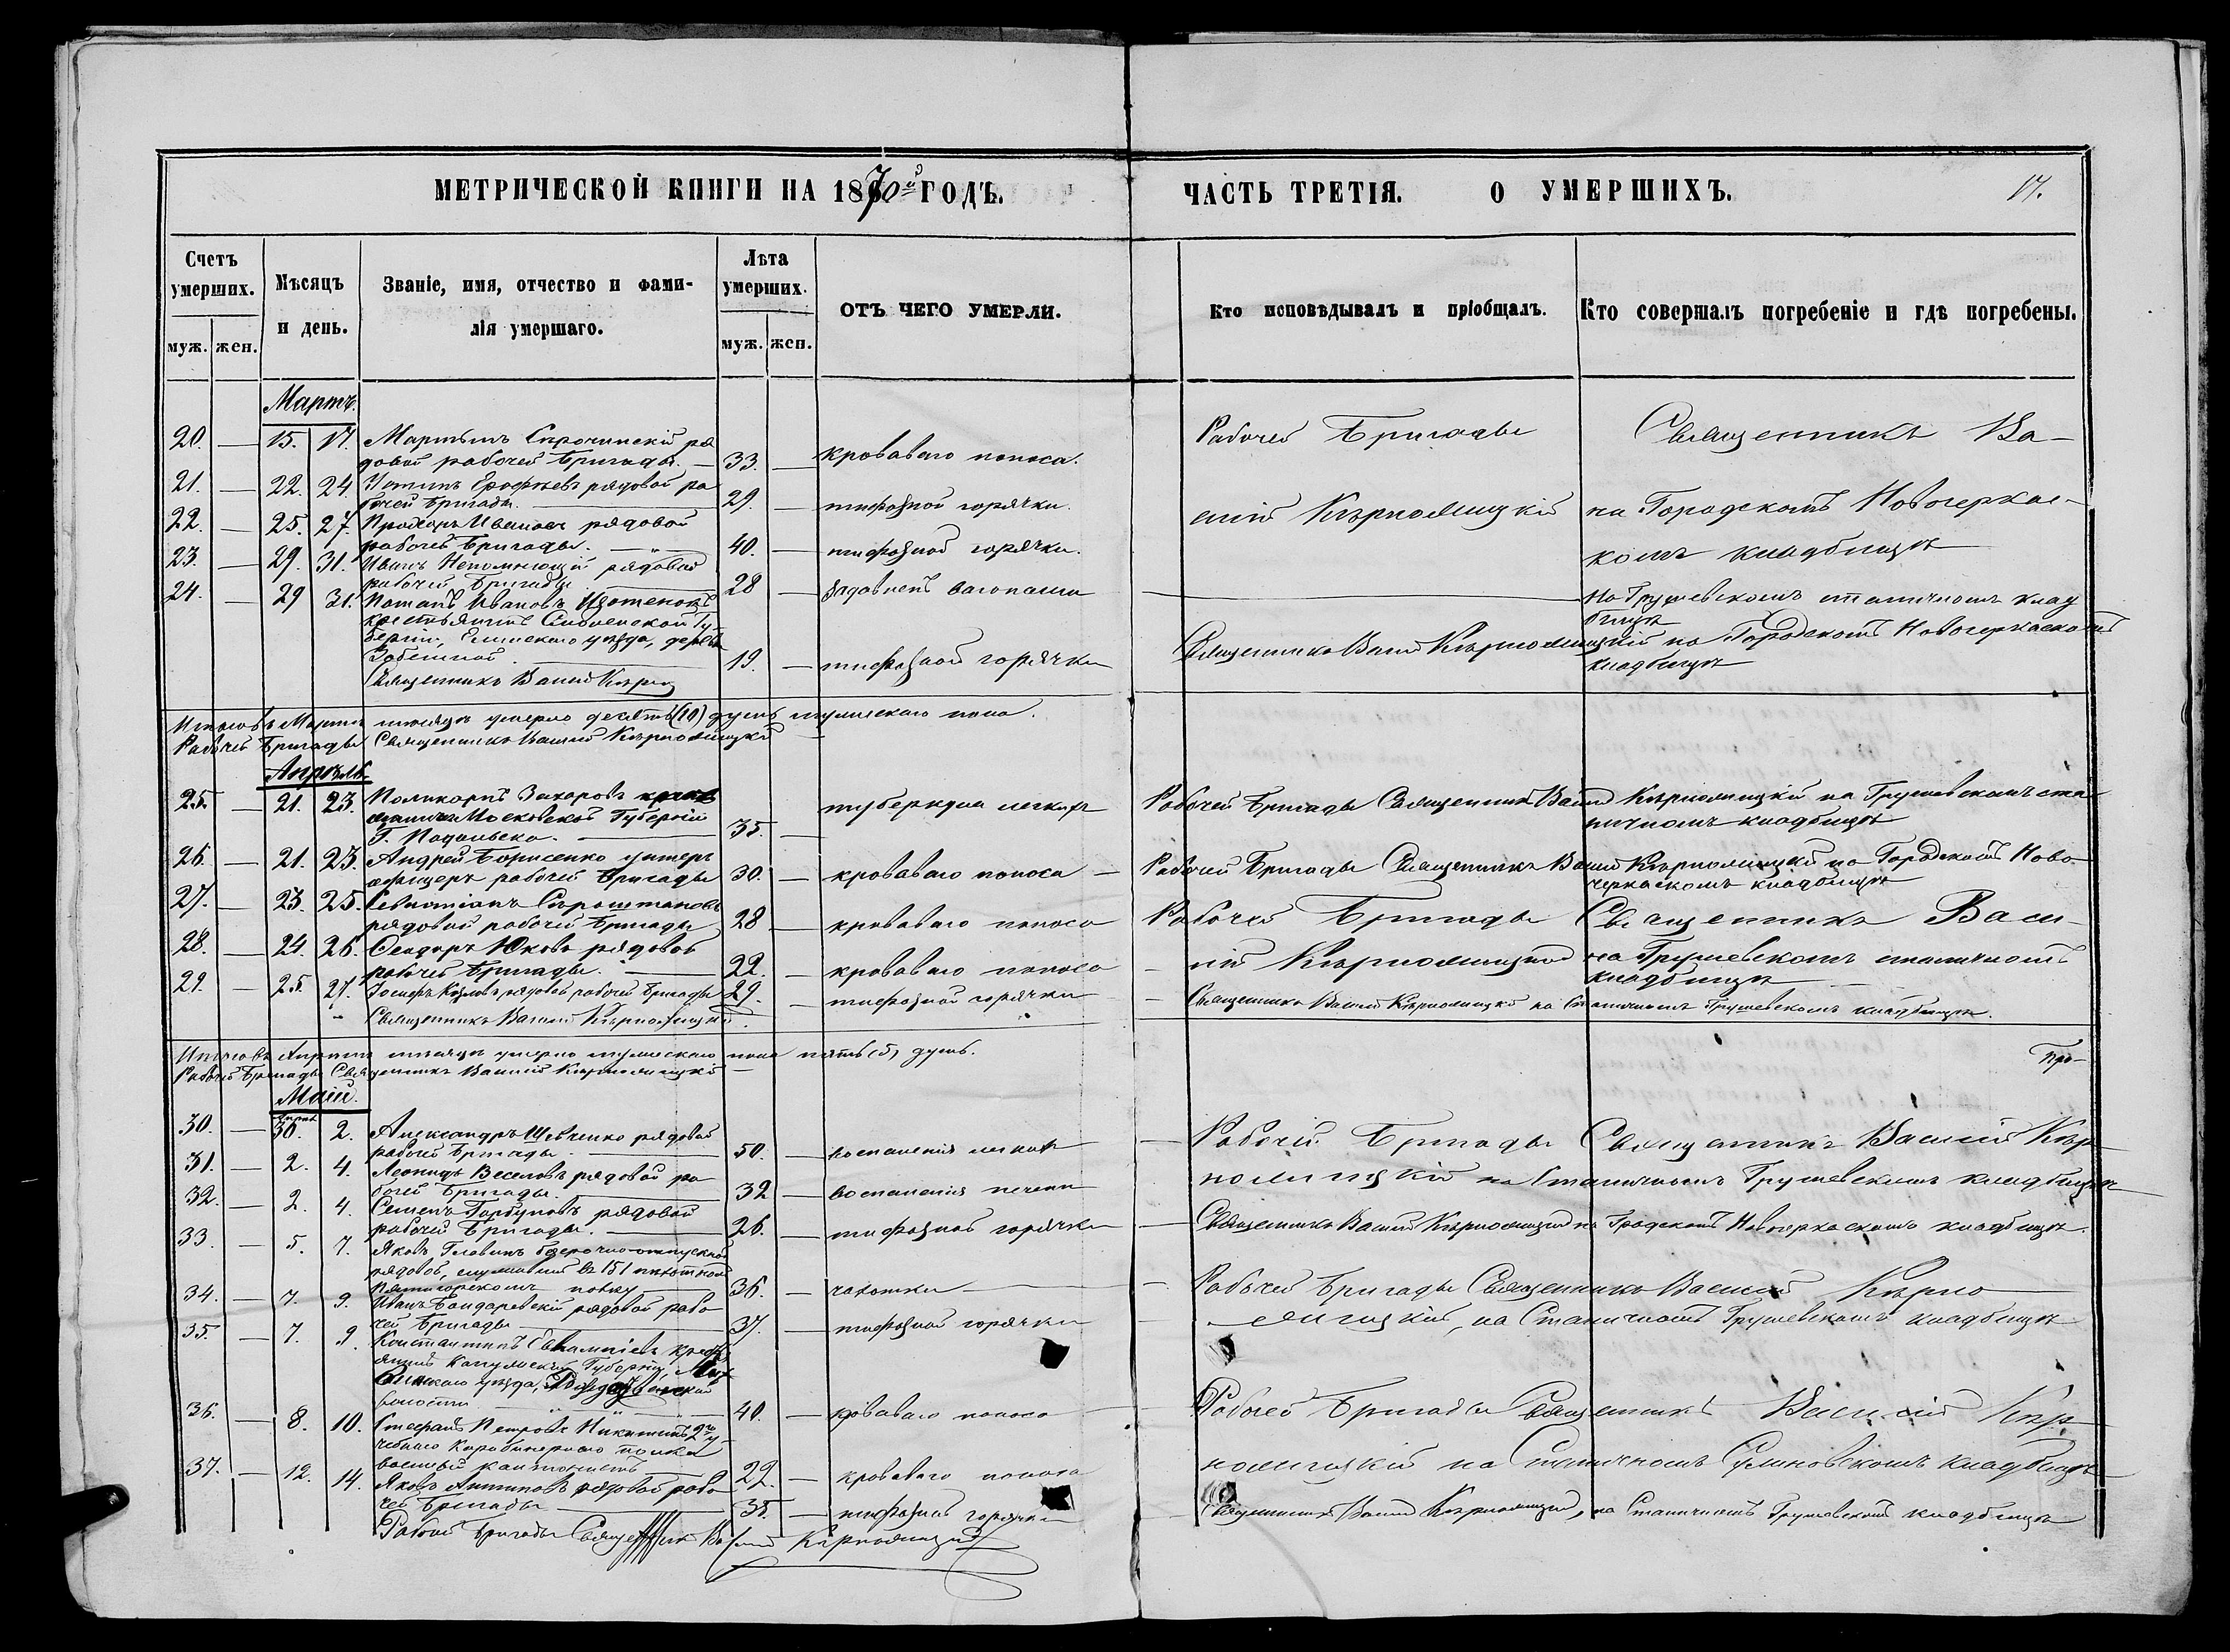 МЕТРИЧЕСКОЙ КНИГИ НА 1870й ГОДЪ.
ЧАСТЬ ТРЕТІЯ. О УМЕРШИХЪ.
17.
Счетъ умерших.
муж. жен.
Мѣсяцъ и день.
Званіе, имя, отчество и фами-
лія умершаго.
Лѣта умерших.
муж. жен.
ОТЪ ЧЕГО УМЕРЛИ.
Кто исповѣдывалъ и пріобщалъ.
Кто совершалъ погребеніе и гдѣ погребены.
Мартъ.
20. — 15. 17. Мартынъ Спрочинскій ря
довой рабочей Бригады. — 33. — кроваваго поноса.
Рабочей Бригады Священникъ Ва-
21. — 22. 24. Устинъ Ерофѣевъ рядовой ра
бочей Бригады. 29. — тифозной горячки.
силій Кѣрножицкій на Городскомъ Новочеркас-
22. — 25. 27. Прохоръ Ивановъ рядовой
рабочей Бригады. — 40. — тифозной горячки.
комъ кладбищѣ
23. — 29. 31. Иванъ Непомнющій рядовой
рабочей Бригады 28 — задавленъ вагонами
На Грушевскомъ станичномъ клад
бищѣ
24. — 29 31. Потапъ Ивановъ
крестьянинъ Смоленской Гу-
берніи, Ельнскаго уѣзда, дерев
19. — тифозной горячки
Священникъ Василій Кѣрножицкій на Городскомъ Новочеркаскомъ
кладбищѣ
Священникъ Василій Кѣрнож
Итого въ Мартѣ мѣсяцѣ умерло десять (10) душъ мужескаго пола.
Рабочей Бригады Священникъ Василій Кѣрножицкій —
Апрѣль
25. — 21. 23. Поликарпъ Захаровъ
щанинъ Московской Губерніи
Г. Подольска. 35. — туберкула легкихъ
Рабочей Бригады Священникъ Василій Кѣрножицкій на Грушевскомъ ста
ничномъ кладбищѣ
26. — 21. 23. Андрей Борисенко унтеръ
офицеръ рабочей Бригады 30. — кроваваго поноса —
Рабочей Бригады Священникъ Василій Кѣрножицкій на Городскомъ Ново-
черкаскомъ кладбищѣ
27. — 23. 25. Севастіанъ
рядовой рабочей Бригады 28 — кроваваго поноса
Рабочей Бригады Священникъ Васи-
28. — 24. 26. Ѳеодоръ Юковъ рядовой
рабочей Бригады. — 22. — кроваваго поноса
лій Кѣрножицкій на Грушевскомъ станичномъ
кладбищѣ —
29. — 25. 27. Іосифъ Козловъ рядовой рабочей Бригады 29. — тифозной горячки
— Священникъ Василій Кѣрножицкій на Станичномъ Грушевскомъ кладбищѣ.
Священникъ Василій Кѣрножицкій.
Итого въ Апрѣлѣ мѣсяцѣ умерло мужескаго пола пять (5) душъ.
Про-
Рабочей Бригады Священникъ Василій Кѣрножицкій —
Маій.
30. — 30. 2. Александръ Шевченко рядовой
рабочей Бригады. 50. — воспаленія легкихъ
— Рабочей Бригады Священникъ Василій Кѣр-
31. — 2. 4. Леонидъ Веселовъ рядовой ра
бочей Бригады. 32 — воспаленія печени
ножицкій на Станичномъ Грушевскомъ кладбищѣ
32. — 2. 4. Семенъ Горбуновъ рядовой
рабочей Бригады. 26. — тифозной горячки
— Священникъ Василій Кѣрножицкій на Градскомъ Новочеркаскомъ кладбищѣ.
33. — 5. 7. Яковъ Головинъ безсрочно-отпускной
рядовой, служившій въ 151 пѣхотномъ
Пятигорскомъ полку 36. — чахотки —
— Рабочей Бригады Священникъ Василій Кѣрно
34. — 7. 9. Иванъ Бондаревскій рядовой рабо
чей Бригады 37. — тифозной горячки
жицкій, на Станичномъ Грушевскомъ кладбищѣ
35. — 7. 9. Константинъ Евлампіевъ крест
янинъ Калужской Губерніи,
уѣзда,
волости 40. — кроваваго поноса
Рабочей Бригады Священникъ Василій Кѣр-
36. — 8. 10. Стефанъ Петровъ Никитинъ 2го у-
чебнаго Карабинернаго полка
военный кантонистъ 22. — кроваваго поноса
ножицкій на Станичномъ Сулиновскомъ кладбищѣ
37. — 12. 14. Яковъ Антиповъ рядовой рабо
чей Бригады 35. — тифозной горячки
Священникъ Василій Кѣрножицкій, на Станичномъ Грушевскомъ кладбищѣ
Рабочей Бригады Священникъ Василій Кѣрножицкій